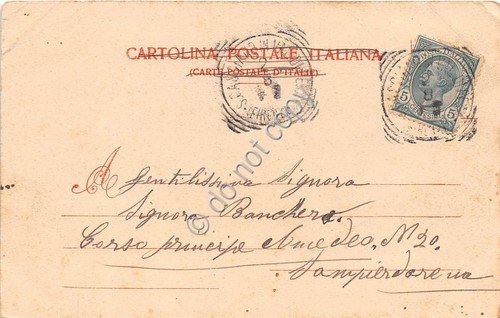 CARTOLINA POSTALE ITALIANA
(CARTE POSTALE D'ITALIE)
5 5
© do not copy
A Gentilissima Signora
Signora Banchero
Corso principe Amedeo, N 20.
Sampierdarena